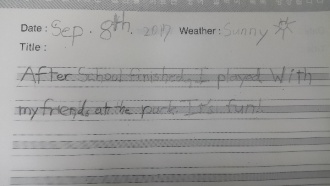 Date: Sep. 8th. 2017 Weather: Sunny
Title:
After School finished, I played With
my friends at the park. It's fun!